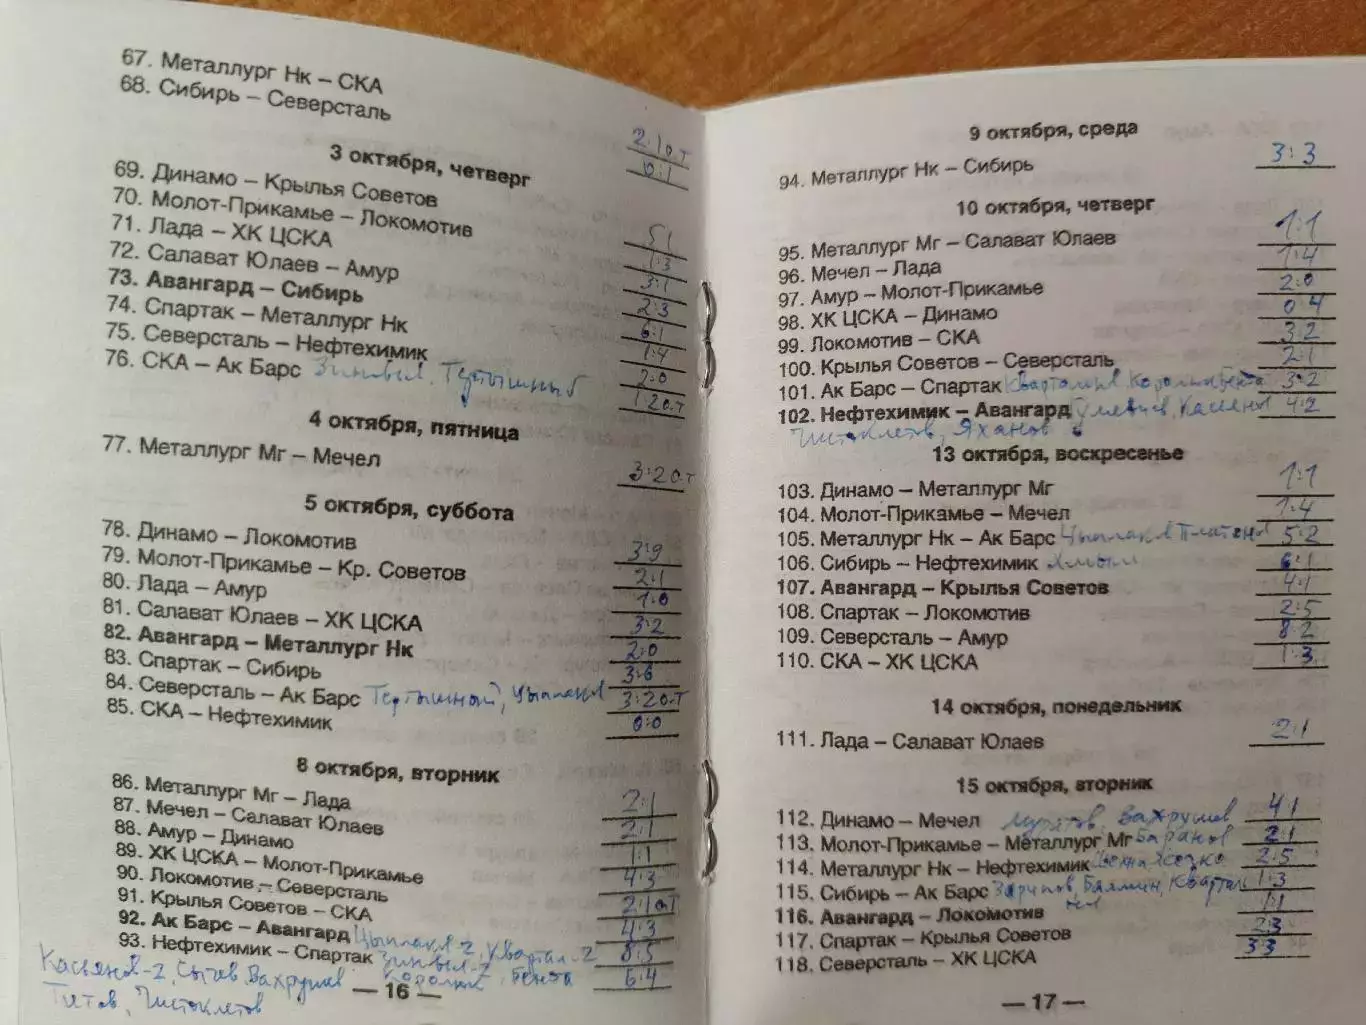 67. Металлург Нк – СКА 2:1 о.т
68. Сибирь – Северсталь 0:1
3 октября, четверг
69. Динамо – Крылья Советов 5:1
70. Молот-Прикамье – Локомотив 1:3
71. Лада – ХК ЦСКА 3:1
72. Салават Юлаев – Амур 2:3
73. Авангард – Сибирь 6:1
74. Спартак – Металлург Нк 1:4
75. Северсталь – Нефтехимик 2:0
76. СКА – Ак Барс Зиновьев, Тертышный 1:2 о.т
4 октября, пятница
77. Металлург Мг – Мечел 3:2 о.т
5 октября, суббота
78. Динамо – Локомотив 3:9
79. Молот-Прикамье – Кр. Советов 2:1
80. Лада – Амур 1:0
81. Салават Юлаев – ХК ЦСКА 3:2
82. Авангард – Металлург Нк 2:0
83. Спартак – Сибирь 3:6
84. Северсталь – Ак Барс Тертышный, Цыплаков 3:2 о.т
85. СКА – Нефтехимик 0:0
8 октября, вторник
86. Металлург Мг – Лада 2:1
87. Мечел – Салават Юлаев 2:1
88. Амур – Динамо 1:1
89. ХК ЦСКА – Молот-Прикамье 4:3
90. Локомотив – Северсталь 2:1 о.т
91. Крылья Советов – СКА 4:3
92. Ак Барс – Авангард Цыплаков-2, Квартал-2 8:5
93. Нефтехимик – Спартак Зиновьев-2 Королюк, Бента 6:4
Касьянов-2, Сычёв, Вахрушев
Титов, Чистоклетов
— 16 —
9 октября, среда
94. Металлург Нк – Сибирь 3:3
10 октября, четверг
95. Металлург Мг – Салават Юлаев 1:1
96. Мечел – Лада 1:4
97. Амур – Молот-Прикамье 2:0
98. ХК ЦСКА – Динамо 0:4
99. Локомотив – СКА 3:2
100. Крылья Советов – Северсталь 2:1
101. Ак Барс – Спартак Королюк, Бента 3:2
102. Нефтехимик – Авангард Гулявцев, Касьянов 4:2
Чистоклетов, Яханов
13 октября, воскресенье
103. Динамо – Металлург Мг 1:1
104. Молот-Прикамье – Мечел 1:4
105. Металлург Нк – Ак Барс Цыплаков Платонов 5:2
106. Сибирь – Нефтехимик Хмыль 6:1
107. Авангард – Крылья Советов 4:1
108. Спартак – Локомотив 2:5
109. Северсталь – Амур 8:2
110. СКА – ХК ЦСКА 1:3
14 октября, понедельник
111. Лада – Салават Юлаев 2:1
15 октября, вторник
112. Динамо – Мечел Муратов, Вахрушев 4:1
113. Молот-Прикамье – Металлург Мг Баранов 2:1
114. Металлург Нк – Нефтехимик 2:5
115. Сибирь – Ак Барс Зарипов, Балмин, Квартал 1:3
нов
116. Авангард – Локомотив 1:1
117. Спартак – Крылья Советов 2:3
118. Северсталь – ХК ЦСКА 3:3
— 17 —